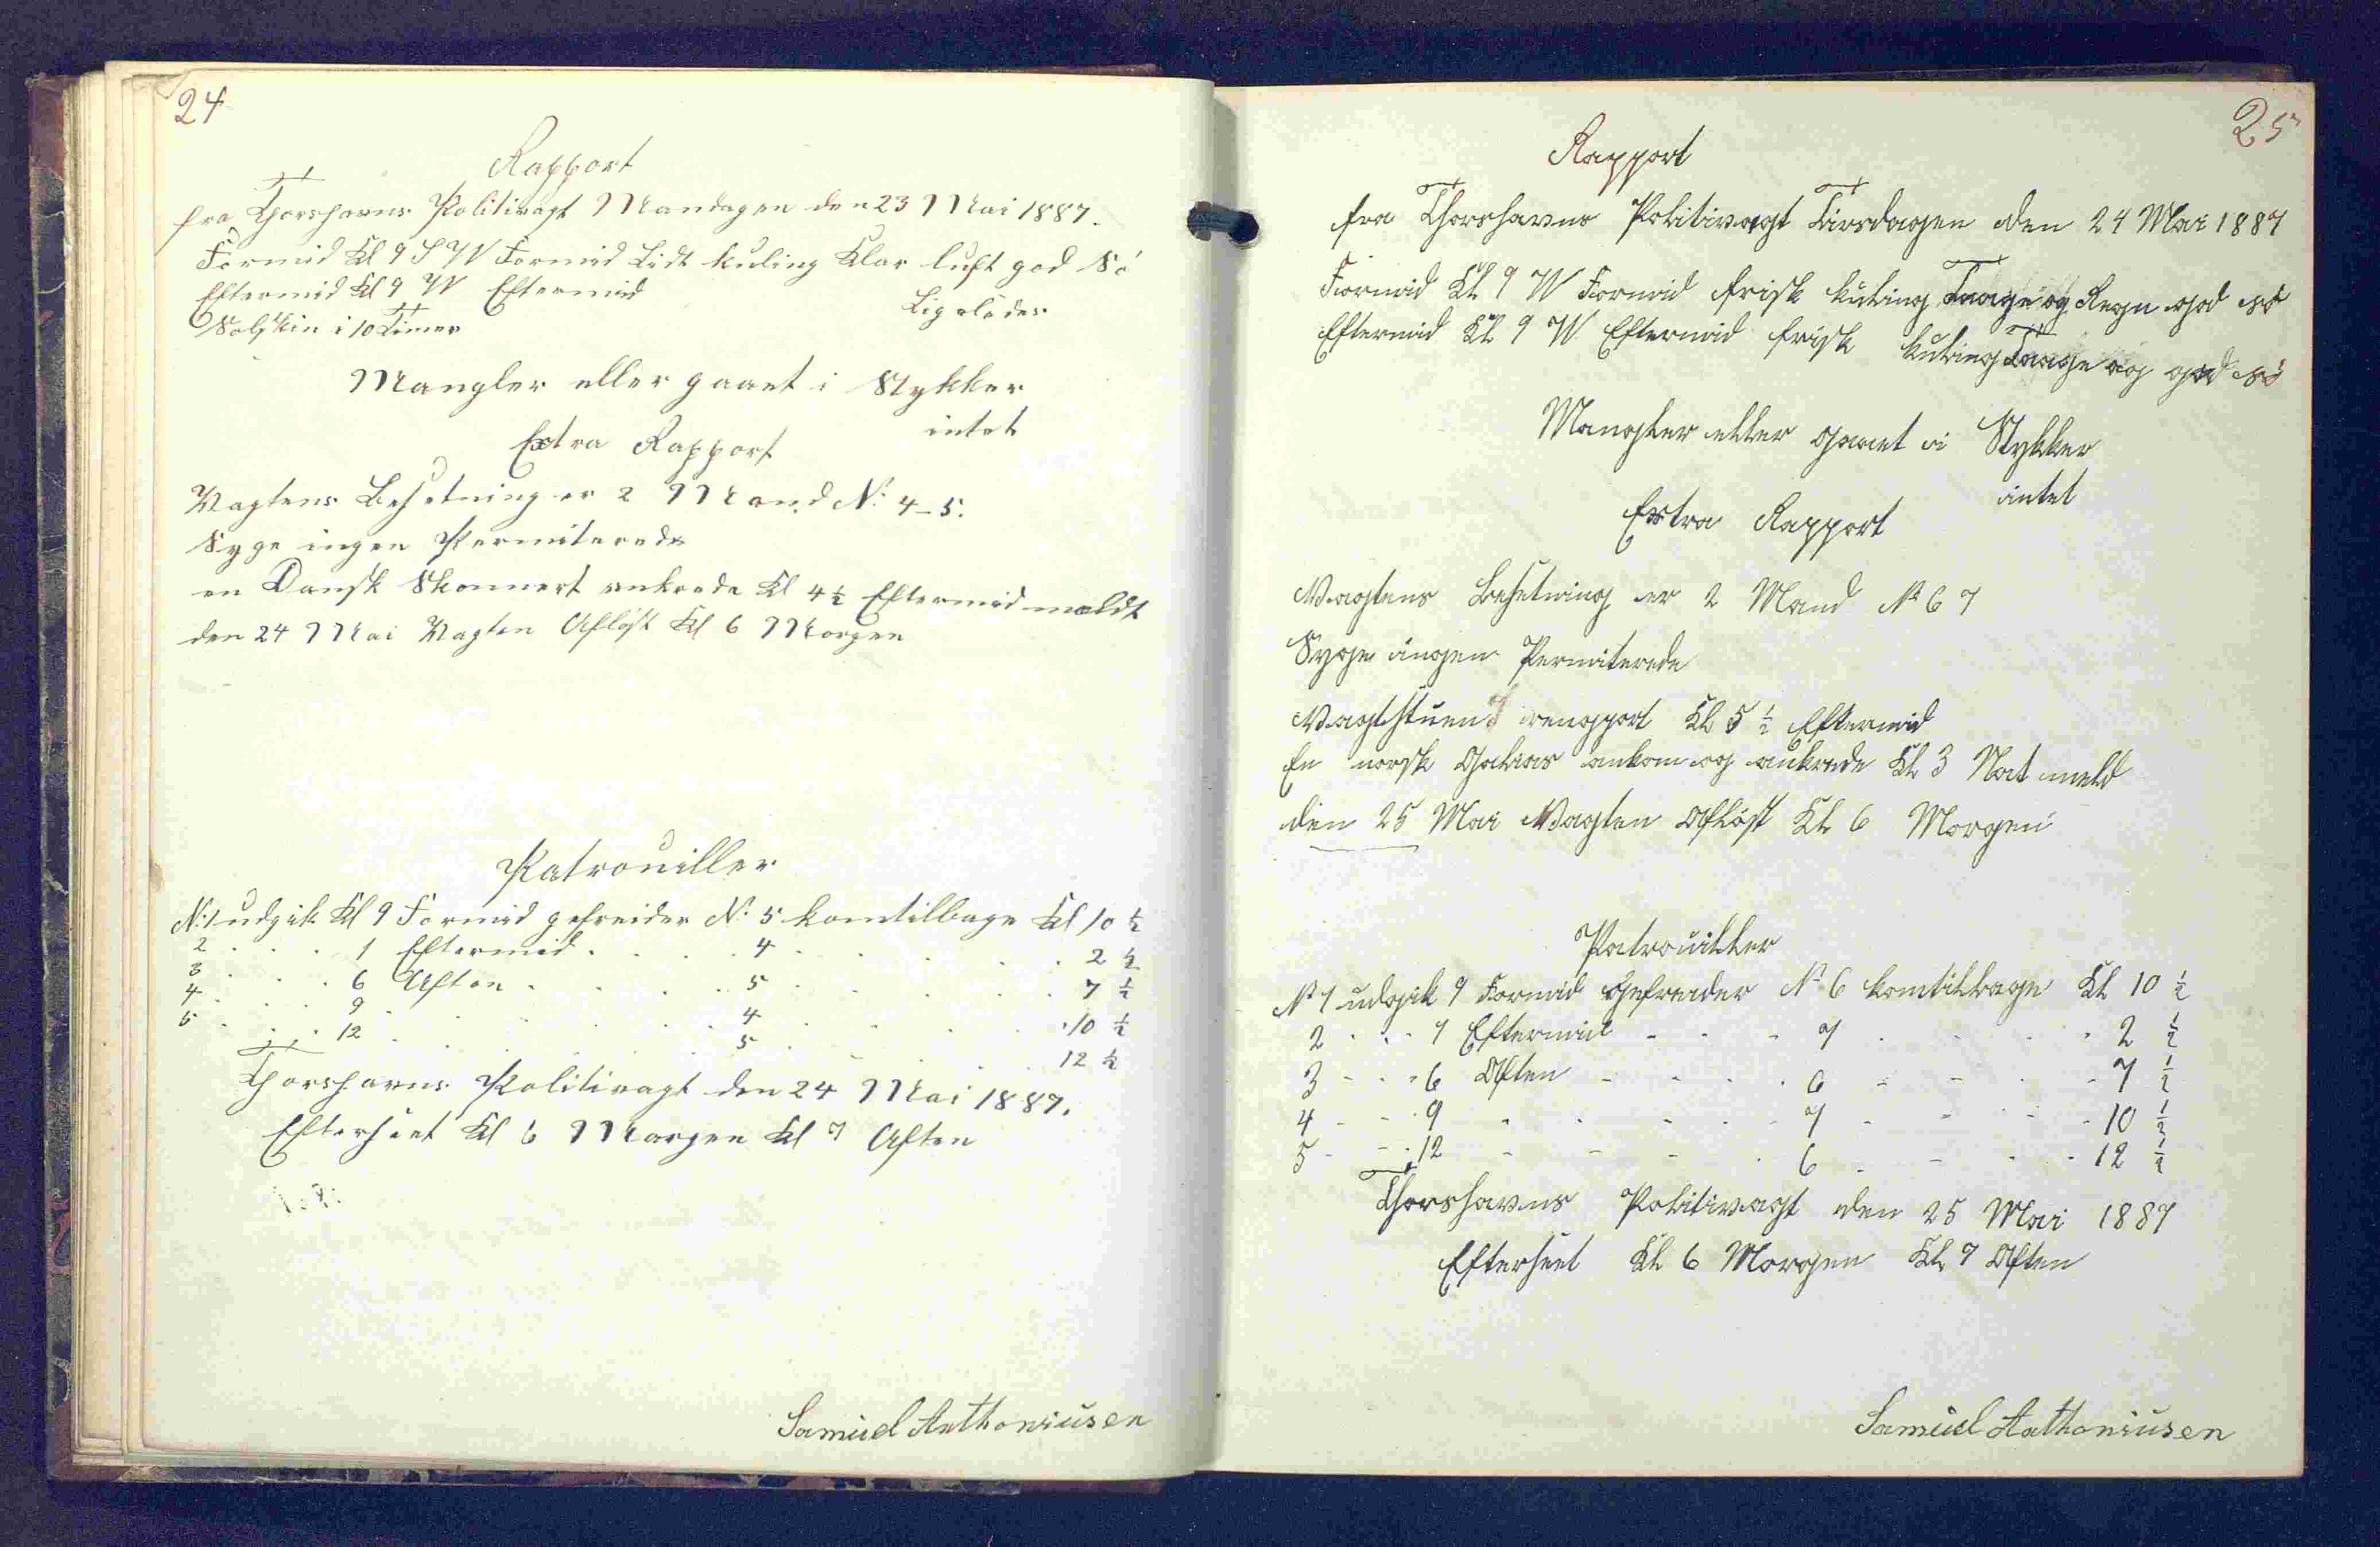 24
Rapport
fra Thorshavns Politivagt Mandagen den 23 Mai 1887.
Formid Kl 9 S W Formid Lidt kuling Klar luft god Sö
Eftermid Kl 9 W Eftermid Ligeledes
Solskin i 10 Timer
Mangler eller gaaet i Stykker
intet
Extra Rapport
Vagtens Besetning er 2 Mand N: 4-5.
Syge ingen Permiterede
en Dansk Skonnert ankrede Kl 4½ Eftermid meldt
den 24 Mai Vagten Aflöst Kl 6 Morgen
Patrouiller
N: 1 udgik Kl 9 Formid gefreider N: 5 kom tilbage Kl 10 ½
2 . . . 1 Eftermid . . . 4 . . . . 2 ½
3 . . . 6 Aften . . . . 5 . . . . 7 ½
4 . . . 9 . . . . 4 . . . . 10 ½
5 . . . 12 . . . . 5 . . . . 12 ½
Thorshavns Politivagt den 24 Mai 1887.
Efterseet Kl 6 Morgen Kl 7 Aften
Samuel Anthoniusen
25
Rapport
fra Thorshavns Politivagt Tirsdagen den 24 Mai 1887
Formid Kl 9 W Formid frisk kuling Taage og Regn god sö
Eftermid Kl 9 W Eftermid frisk kuling Taage og god sö
Mangler eller gaaet i Stykker
intet
Extra Rapport
Vagtens Besetning er 2 Mand No 6 7
Syge ingen Permiterede
Vagtstuen rengjort Kl 5 ½ Eftermid
En norsk Galias ankom og ankrede Kl 3 Nat meld
den 25 Mai Vagten Aflöst Kl 6 Morgen
Patrouiller
No 1 udgik 9 Formid Gefreider No 6 kom tilbage Kl 10 ½
2 . . . 1 Eftermid - - - 7 . . . . 2 ½
3 - . . 6 Aften - - . . 6 - - . . 7 ½
4 - - . 9 . . . . 7 - - - . 10 ½
5 - - . 12 - - - . 6 . - . . 12 ½
Thorshavns Politivagt den 25 Mai 1887
Efterseet Kl 6 Morgen Kl 7 Aften
Samuel Anthoniusen